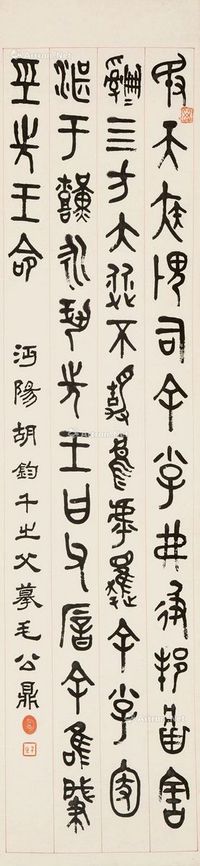 敃天疾畏司余小子弗彶邦將害
𤔲四方大從不靜烏虖懼余小子圂
湛于艱永巩先王曰父厝今余唯肇
巠先王命
沔陽胡鈞千之父摹毛公鼎